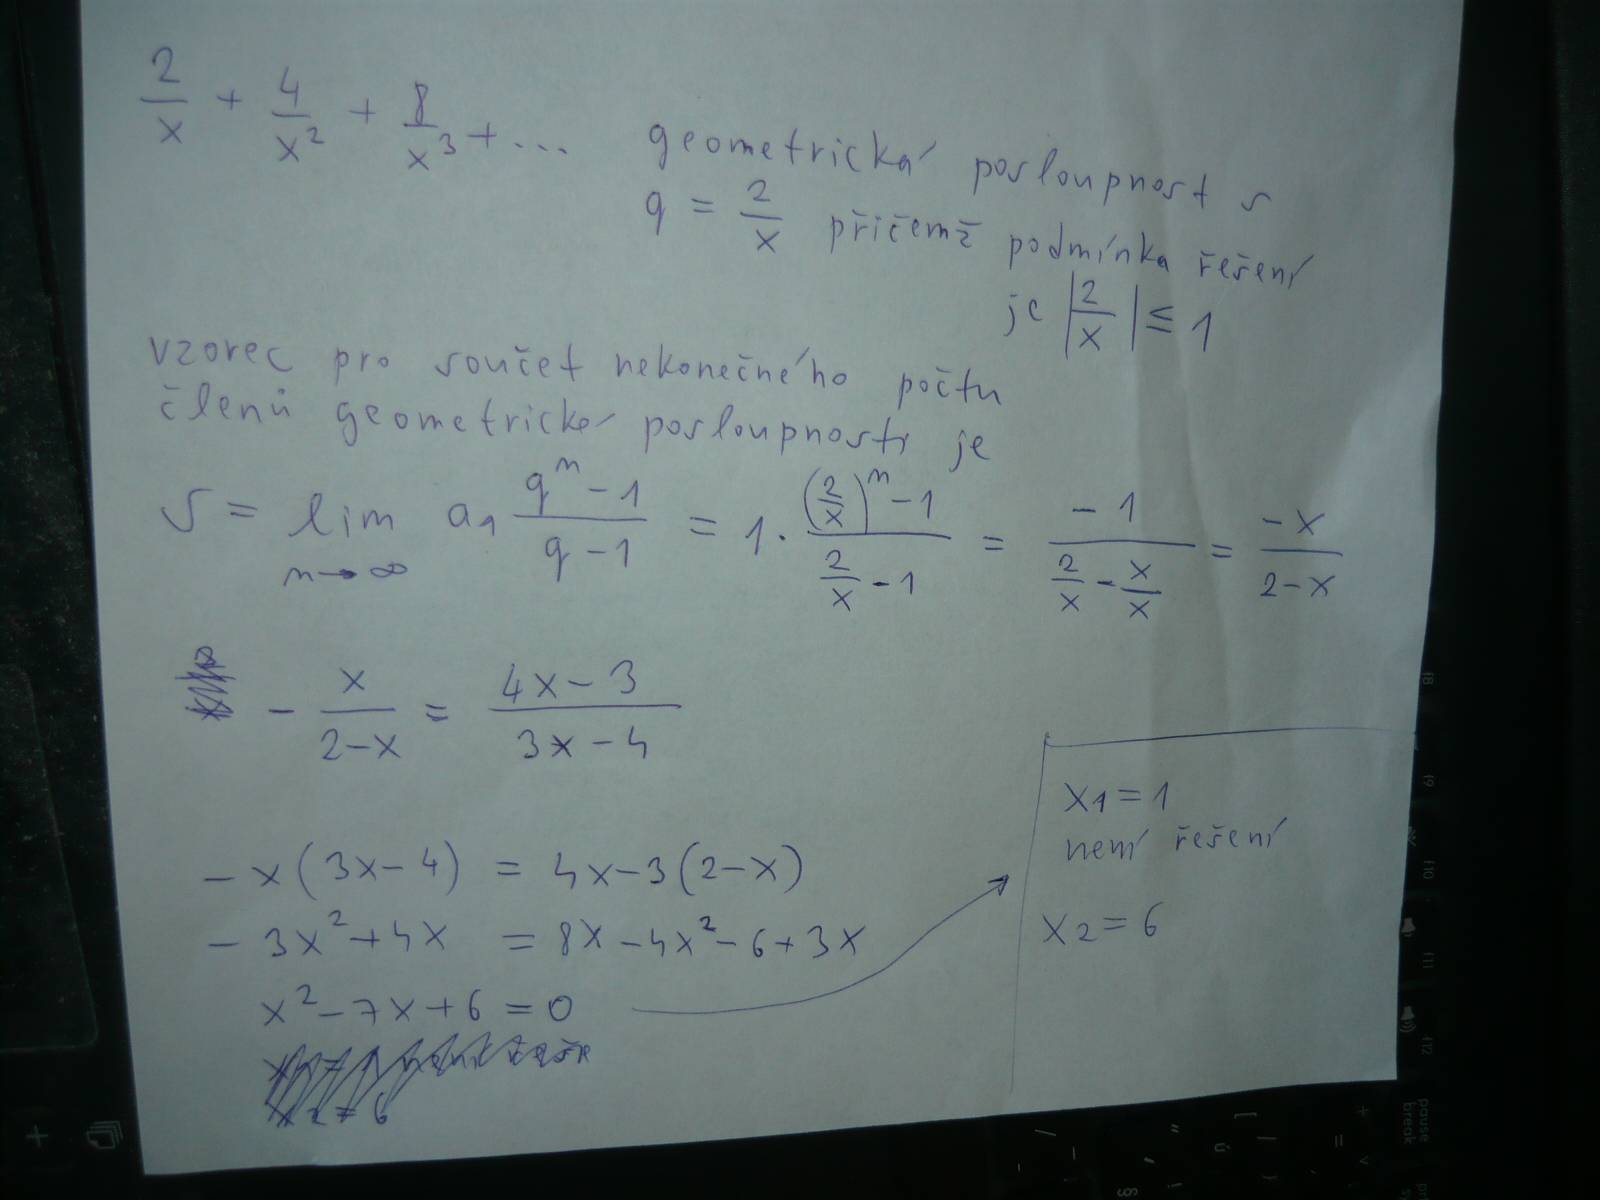 2/x + 4/x² + 8/x³ + ...
geometrická posloupnost s
q = 2/x přičemž podmínka řešení
je |2/x| ≤ 1
vzorec pro součet nekonečného počtu
členů geometrické posloupnosti je
s = lim n→∞ a₁ (qⁿ - 1)/(q - 1) = 1 · ((2/x)ⁿ - 1)/(2/x - 1) = -1/(2/x - x/x) = -x/(2-x)
- x/(2-x) = (4x-3)/(3x-4)
-x(3x-4) = 4x-3(2-x)
-3x²+4x = 8x-4x²-6+3x
x²-7x+6=0
x1=1
není řešení
x2=6
f8
f9
f10
f11
f12
pause
break